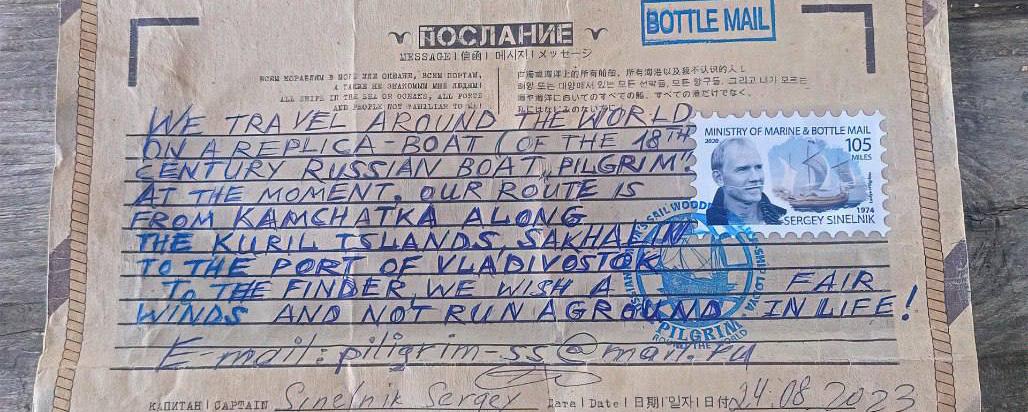 BOTTLE MAIL
ПОСЛАНИЕ
MESSAGE | 信函 | 메시지 | メッセージ
ВСЕМ КОРАБЛЯМ В МОРЕ ИЛИ ОКЕАНЕ, ВСЕМ ПОРТАМ,
А ТАКЖЕ НЕ ЗНАКОМЫМ МНЕ ЛЮДЯМ!
ALL SHIPS IN THE SEA OR OCEANS, ALL PORTS
AND PEOPLE NOT FAMILIAR TO ME!
WE TRAVEL AROUND THE WORLD
ON A REPLICA-BOAT (OF THE 18TH
CENTURY RUSSIAN BOAT „PILGRIM"
AT THE MOMENT, OUR ROUTE IS
FROM KAMCHATKA ALONG
THE KURIL ISLANDS, SAKHALIN
TO THE PORT OF VLADIVOSTOK
TO THE FINDER, WE WISH A FAIR
WINDS AND NOT RUN AGROUND IN LIFE!
E-mail: piligrim-ss@mail.ru
MINISTRY OF MARINE & BOTTLE MAIL
2020
105
MILES
1974
SERGEY SINELNIK
PILGRIM
ROUND THE WORLD
КАПИТАН | CAPTAIN Sinelnik Sergey Дата | Date | 日期 | 일자 | 日付 24.08.2023